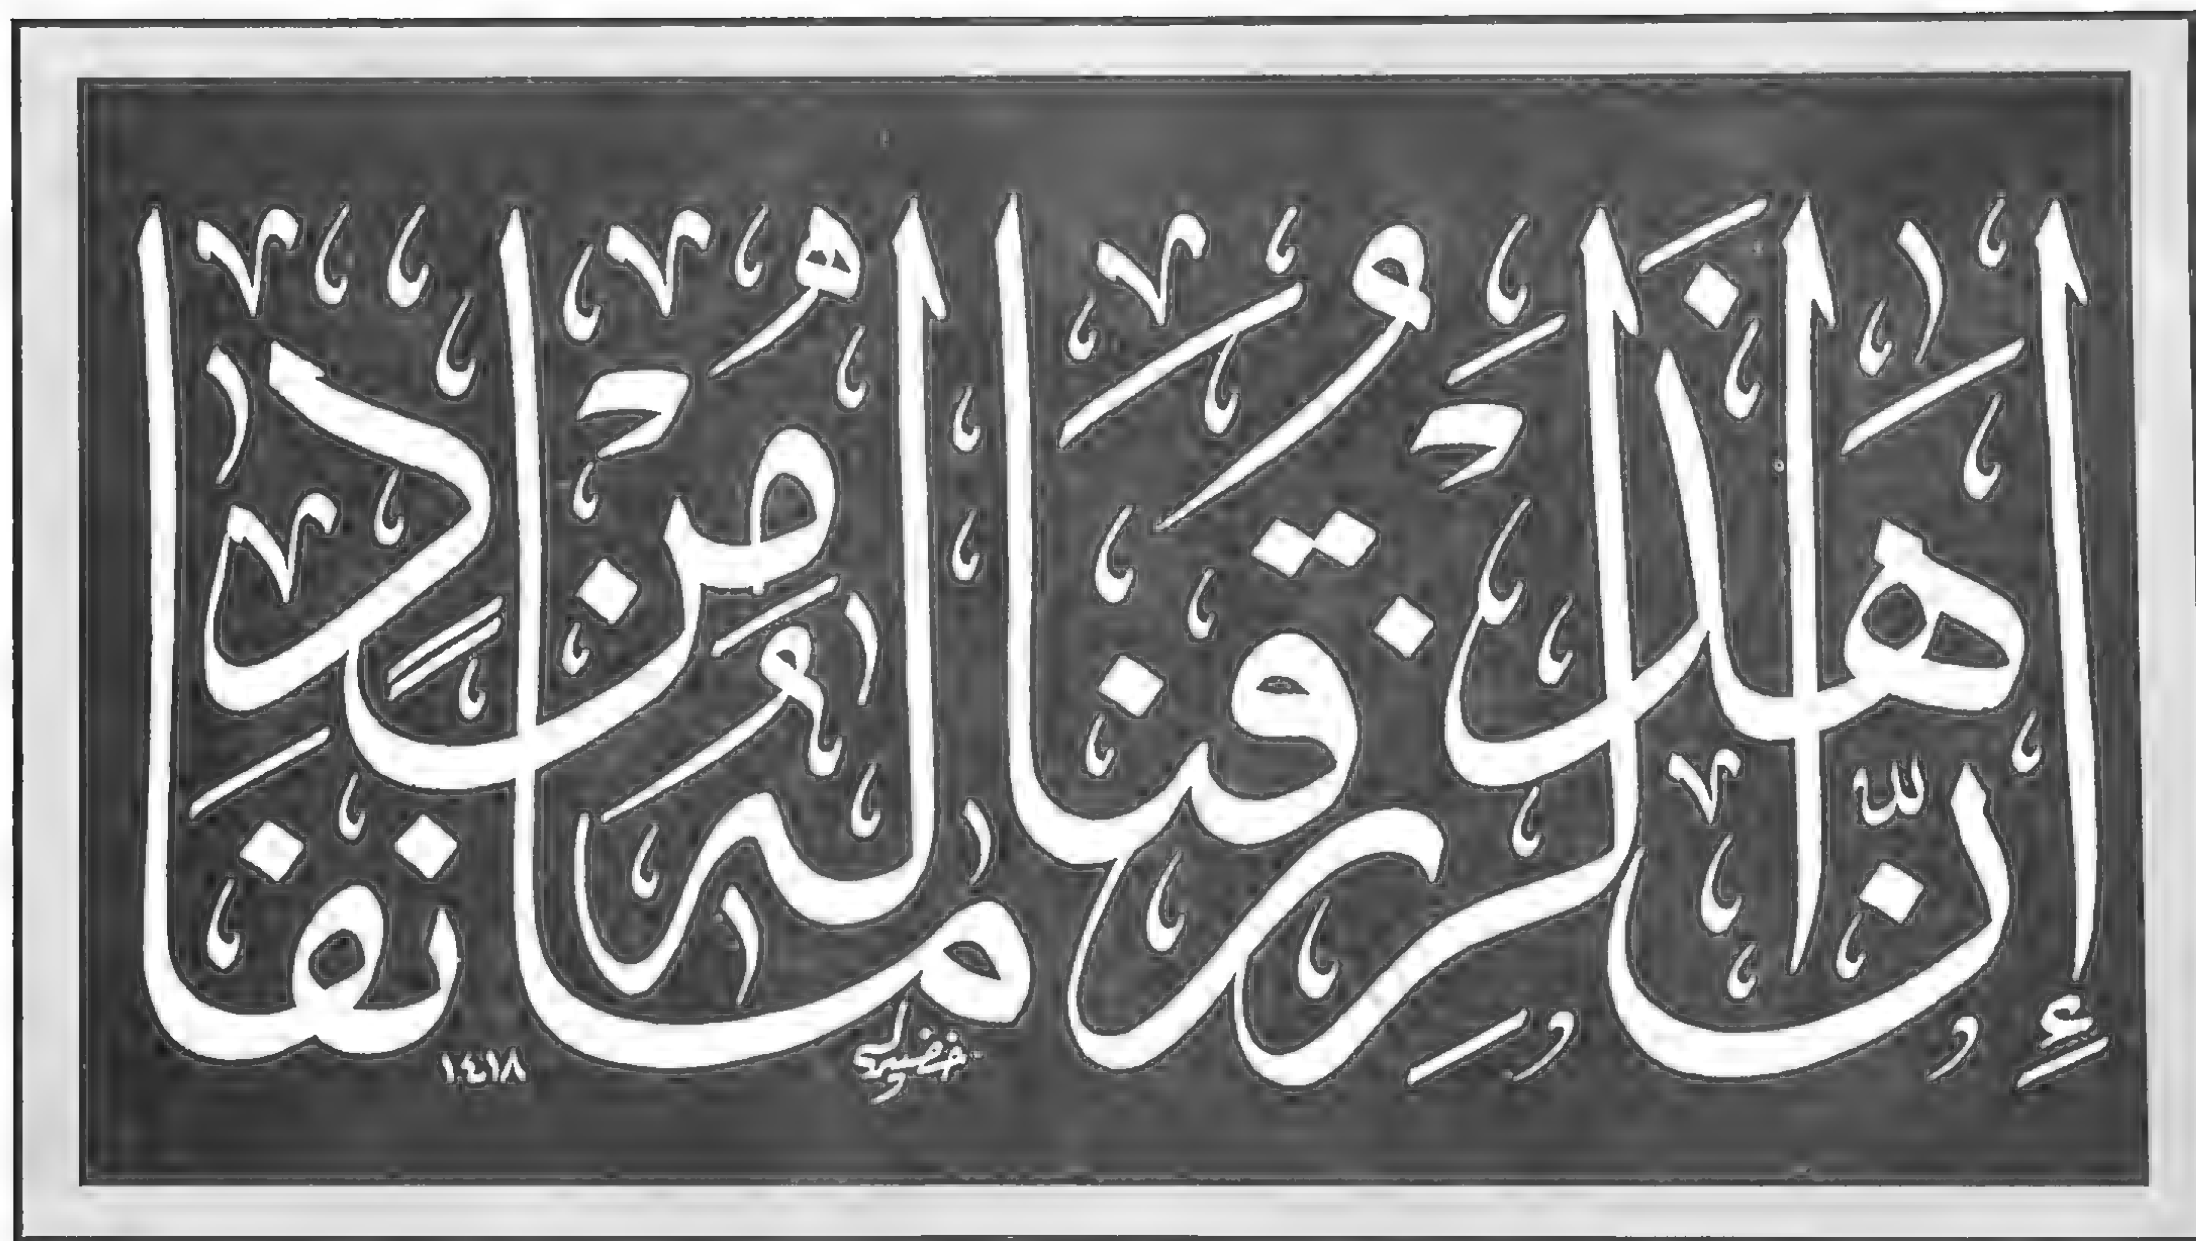 إِنَّ هَٰذَا لَرِزْقُنَا مَا لَهُ مِنْ نَفَادٍ
١٤١٨